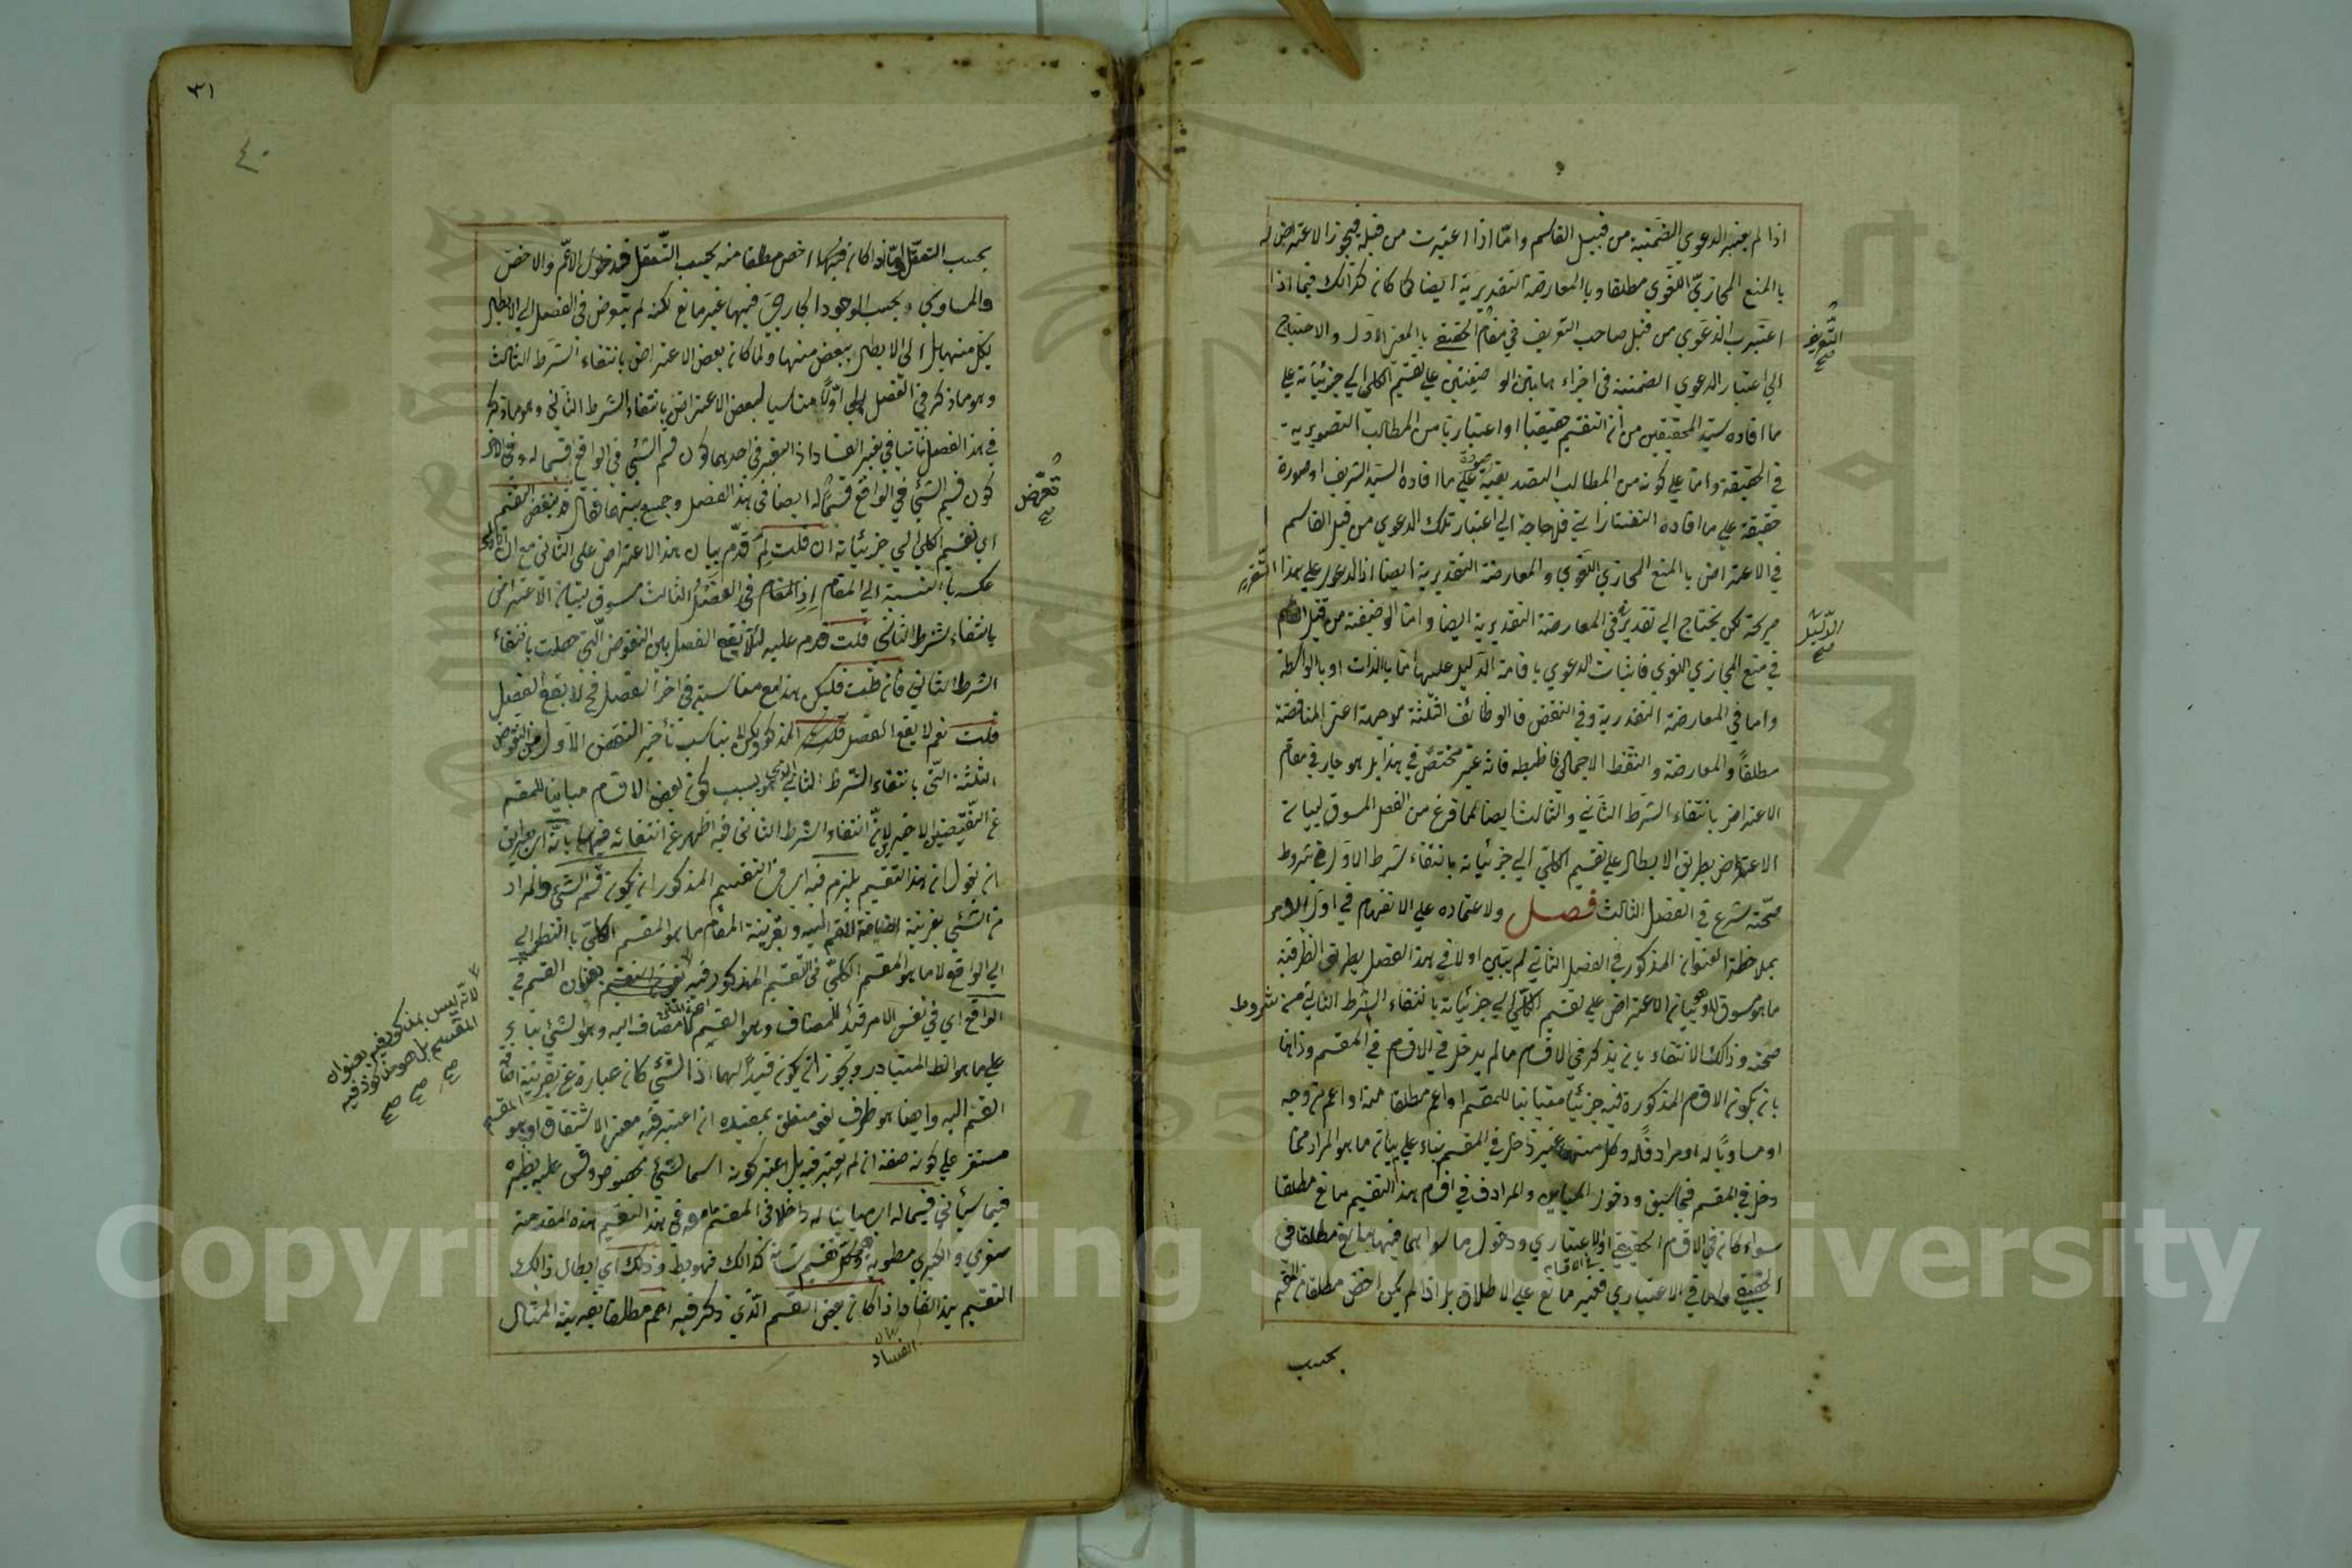 اذا لم يعتبر الدعوي الضمنية من قبيل القاسم وامّا اذا اعتبرت من قبله فيجوز الاعتراض له
بالمنع المجازيّ اللغوي مطلقا وبالمعارضة التقديرية ايضا كما كان كذالك فيما اذا
اعتبرت الدعوي من قبل صاحب التعريف في مقام الحقيقي بالمعني الاول والاحتياج
الي اعتبار الدعوي الضمنية في اجراء هاتين الوظيفتين علي تقسيم الكلي الي جزئياته علي
ما افاده سيّد المحققين من أن التقسيم حقيقيا او اعتباريا من المطالب التصويرية
في الحقيقة وامّا علي كونه من المطالب التصديقية صورة علي ما افاده السيّد الشريف او صورة
حقيقة علي ما افاده التفتازاني فلا حاجة الي اعتبار تلك الدعوي من قبل القاسم
في الاعتراض بالمنع المجازي اللغوي والمعارضة التقديرية ايضا اذ الدعوي علي هذا التقدير
صريحة لكن يحتاج الي تقدير في المعارضة التقديرية ايضا وامّا الوظيفة من قبل القاسم
في منع المجازي اللغوي فاثبات الدعوي باقامة الدليل عليها امّا بالذات او بالواسطة
واما في المعارضة التقديرية وفي النقض فالوظائف الثلثة موجهة اعني المناقضة
مطلقاً والمعارضة والنقض الاجمالي فاضبطه فانه غير مختص في هذا بل هو جار في مقام
الاعتراض بانتفاء الشرط الثاني والثالث ايضا لما فرغ من الفصل المسوق لبيان
الاعتراض بطريق الابطال علي تقسيم الكلّي الي جزئياته بانتفاء شرط الاول من شروط
صحّته شرع في الفصل الثالث فصل ولاعتماده علي الانفهام في اول الامر
بملاحظة العنوان المذكور في الفصل الثاني لم يبيّن اولا في هذا الفصل بطريق الظرفية
ما هو مسوق له وهو بيان الاعتراض علي تقسيم الكلّي الي جزئياته بانتفاء الشرط الثاني من شروط
صحته وذالك الانتفاء بان يذكر في الاقسام ما لم يدخل في الاقسام في المقسم وذا امّا
بان يكون الاقسام المذكورة فيه جزئيا مباينا للمقسم او اعم مطلقا منه او اعم من وجه
او مساويًا له او مرادفًا له وكل منها غير داخل في المقسم بناء علي بيان ما هو المراد ممّا
دخل في المقسم فيما سبق ودخول المباين والمرادف في اقسام هذا التقسيم مانع مطلقا
سواء كان في الاقسام الحقيقي او الاعتباري ودخول ما سواهما فيها مانع مطلقا في
الحقيقي واما في الاعتباري فغير مانع علي الاطلاق بل اذا لم يكن اخص مطلقا من المقسم
بحسب
التعريف صح
الدليل صح
٣١
٤٠
بحسب التعقل وامّا اذا كان فيها اخص مطلقا منه بحسب التعقل فدخول الاعم والاخص
والمساوي وبحسب الوجود الخارجي فيها غير مانع لكنه لم يتعرض في الفصل الي الابطال
بكل منها بل الي الابطال ببعض منها ولما كان بعض الاعتراض بانتفاء الشرط الثالث
وهو ما ذكر في الفصل اولًا مناسبا لبعض الاعتراض بانتفاء الشرط الثاني وهو ما ذكر
في هذا الفصل ثانيا في تغير الفساد اذ التغير في احدهما كون قسم الشئ في الواقع قسيما له وفي الاخر
كون قسيم الشئ في الواقع قسما له ايضا في هذا الفصل وجمع بينهما فقال قد ينقض التقسيم
اي تقسيم الكلي الي جزئياته ان قلت لِمَ قدّم بيان هذا الاعتراض علي الثاني مع ان الاولي
عكسه بالنسبة الي المقام اذ المقام في الفصل الثالث مسوق لبيان الاعتراض
بانتفاء شرط الثاني قلت قدم عليه لئلا يقع الفصل بين النقوض التي حصلت بانتفاء
الشرط الثاني فان قلت فليكن هذا مع مناسبه في اخر الفصل فح لا يقع الفصل
قلت نعم لا يقع الفصل المذكور لكن لا يناسب تأخير النقض الاول من النقوض
الثلثة التي بانتفاء الشرط الثاني الذي هو بسبب كون بعض الاقسام مباينا للمقسم
عن النقيضين الاخيرين لانّ انتفاء الشرط الثاني فيه اظهر من انتفائه فيهما بانّه اي بطريق
ان نقول ان هذا التقسيم يلزم فيه اي في التقسيم المذكور ان يكون قسم الشئ والمراد
من الشئ بقرينة اضافة القسم اليه وبقرينة المقام ما هو المقسم الكلي بالنظر الي
الي الواقع لا ما هو المقسم الكلّي في التقسيم المذكور فيه بعنوان القسم في
الواقع اي في نفس الامر قيد للمضاف وهو القسم لا للمضاف اليه وهو الشئ بناء
علي ما هو الظ المتبادر ويجوز ان يكون قيدًا لهما اذ الشئ كان عبارة عن بقرينة اضافة
القسم اليه وايضا هو ظرف لغو متعلق بمقيده ان اعتبر فيه معني الاشتقاق او هو
مستقر علي كونه صفة ان لم يعتبر فيه بل اعتبر كونه اسما لشئ مخصوص وقس عليه نظيره
فيما سيأتي قسيما له اي مباينا له داخلا في المقسم معه في هذا التقسيم هذه المقدمة
صغري والكبري مطوية وكل تقسيم شانه كذالك فهو بط وذلك اي ابطال ذالك
التقسيم بهذا الفساد اذا كان بعض القسم الّذي ذكر فيه اعم مطلقا بقرينة المثال
تعرّض صح
لانه ليس بمذكور فيه بعنوان
المقسم بل هو مأخوذ فيه
صح صح صح
بيان الفساد